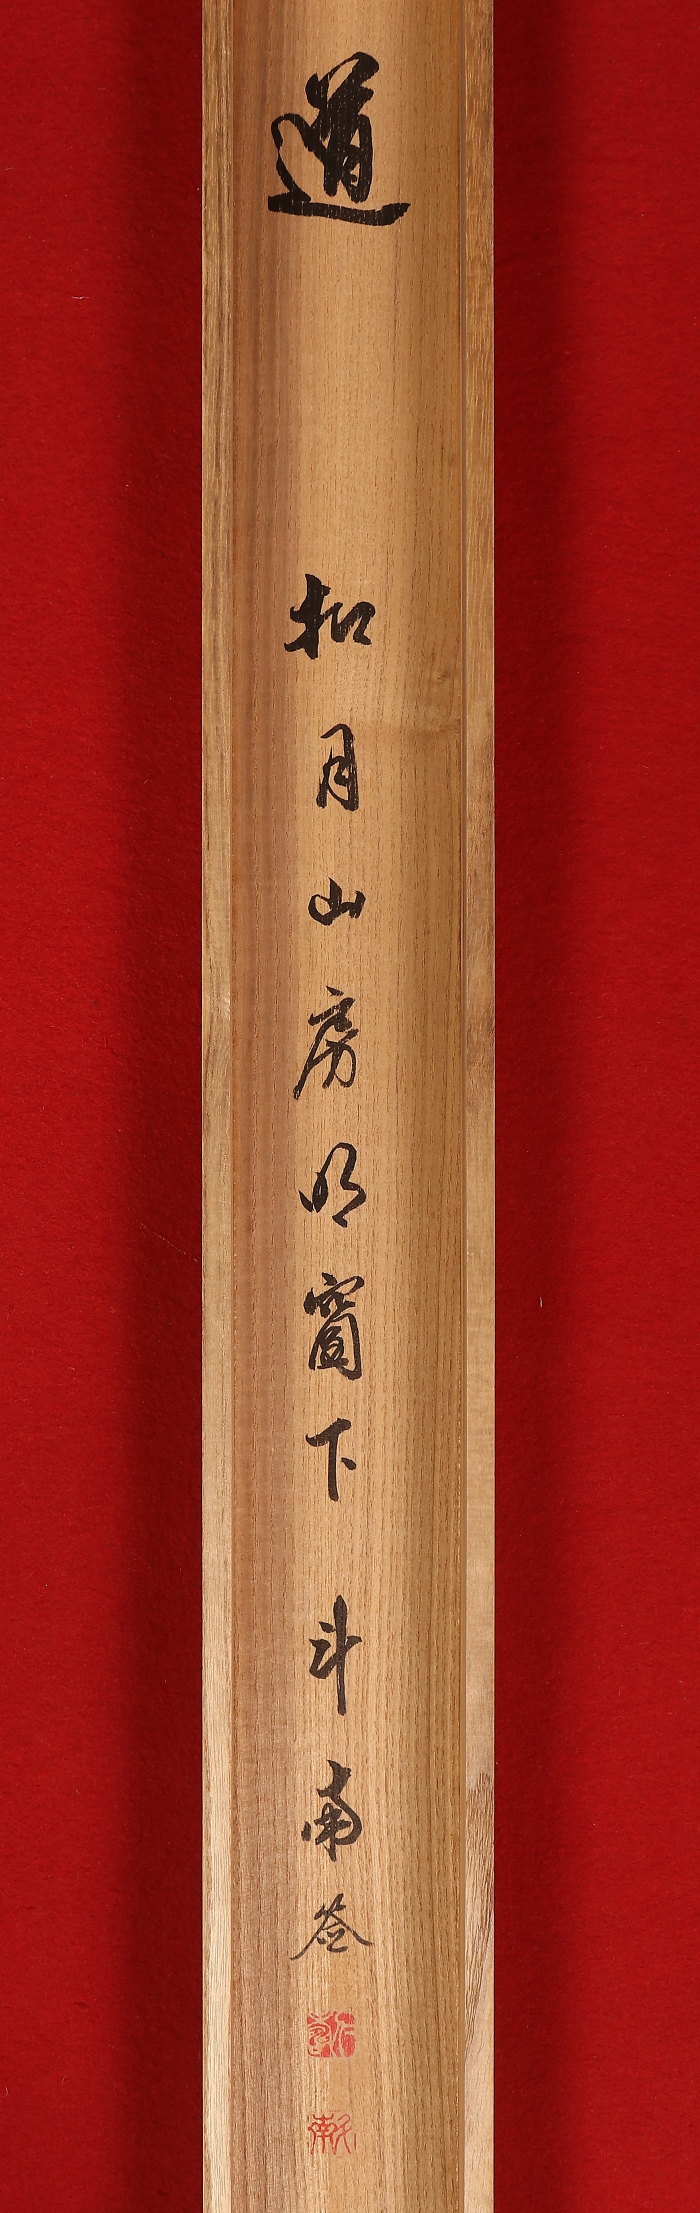 道
扣月山房明窗下 斗南签